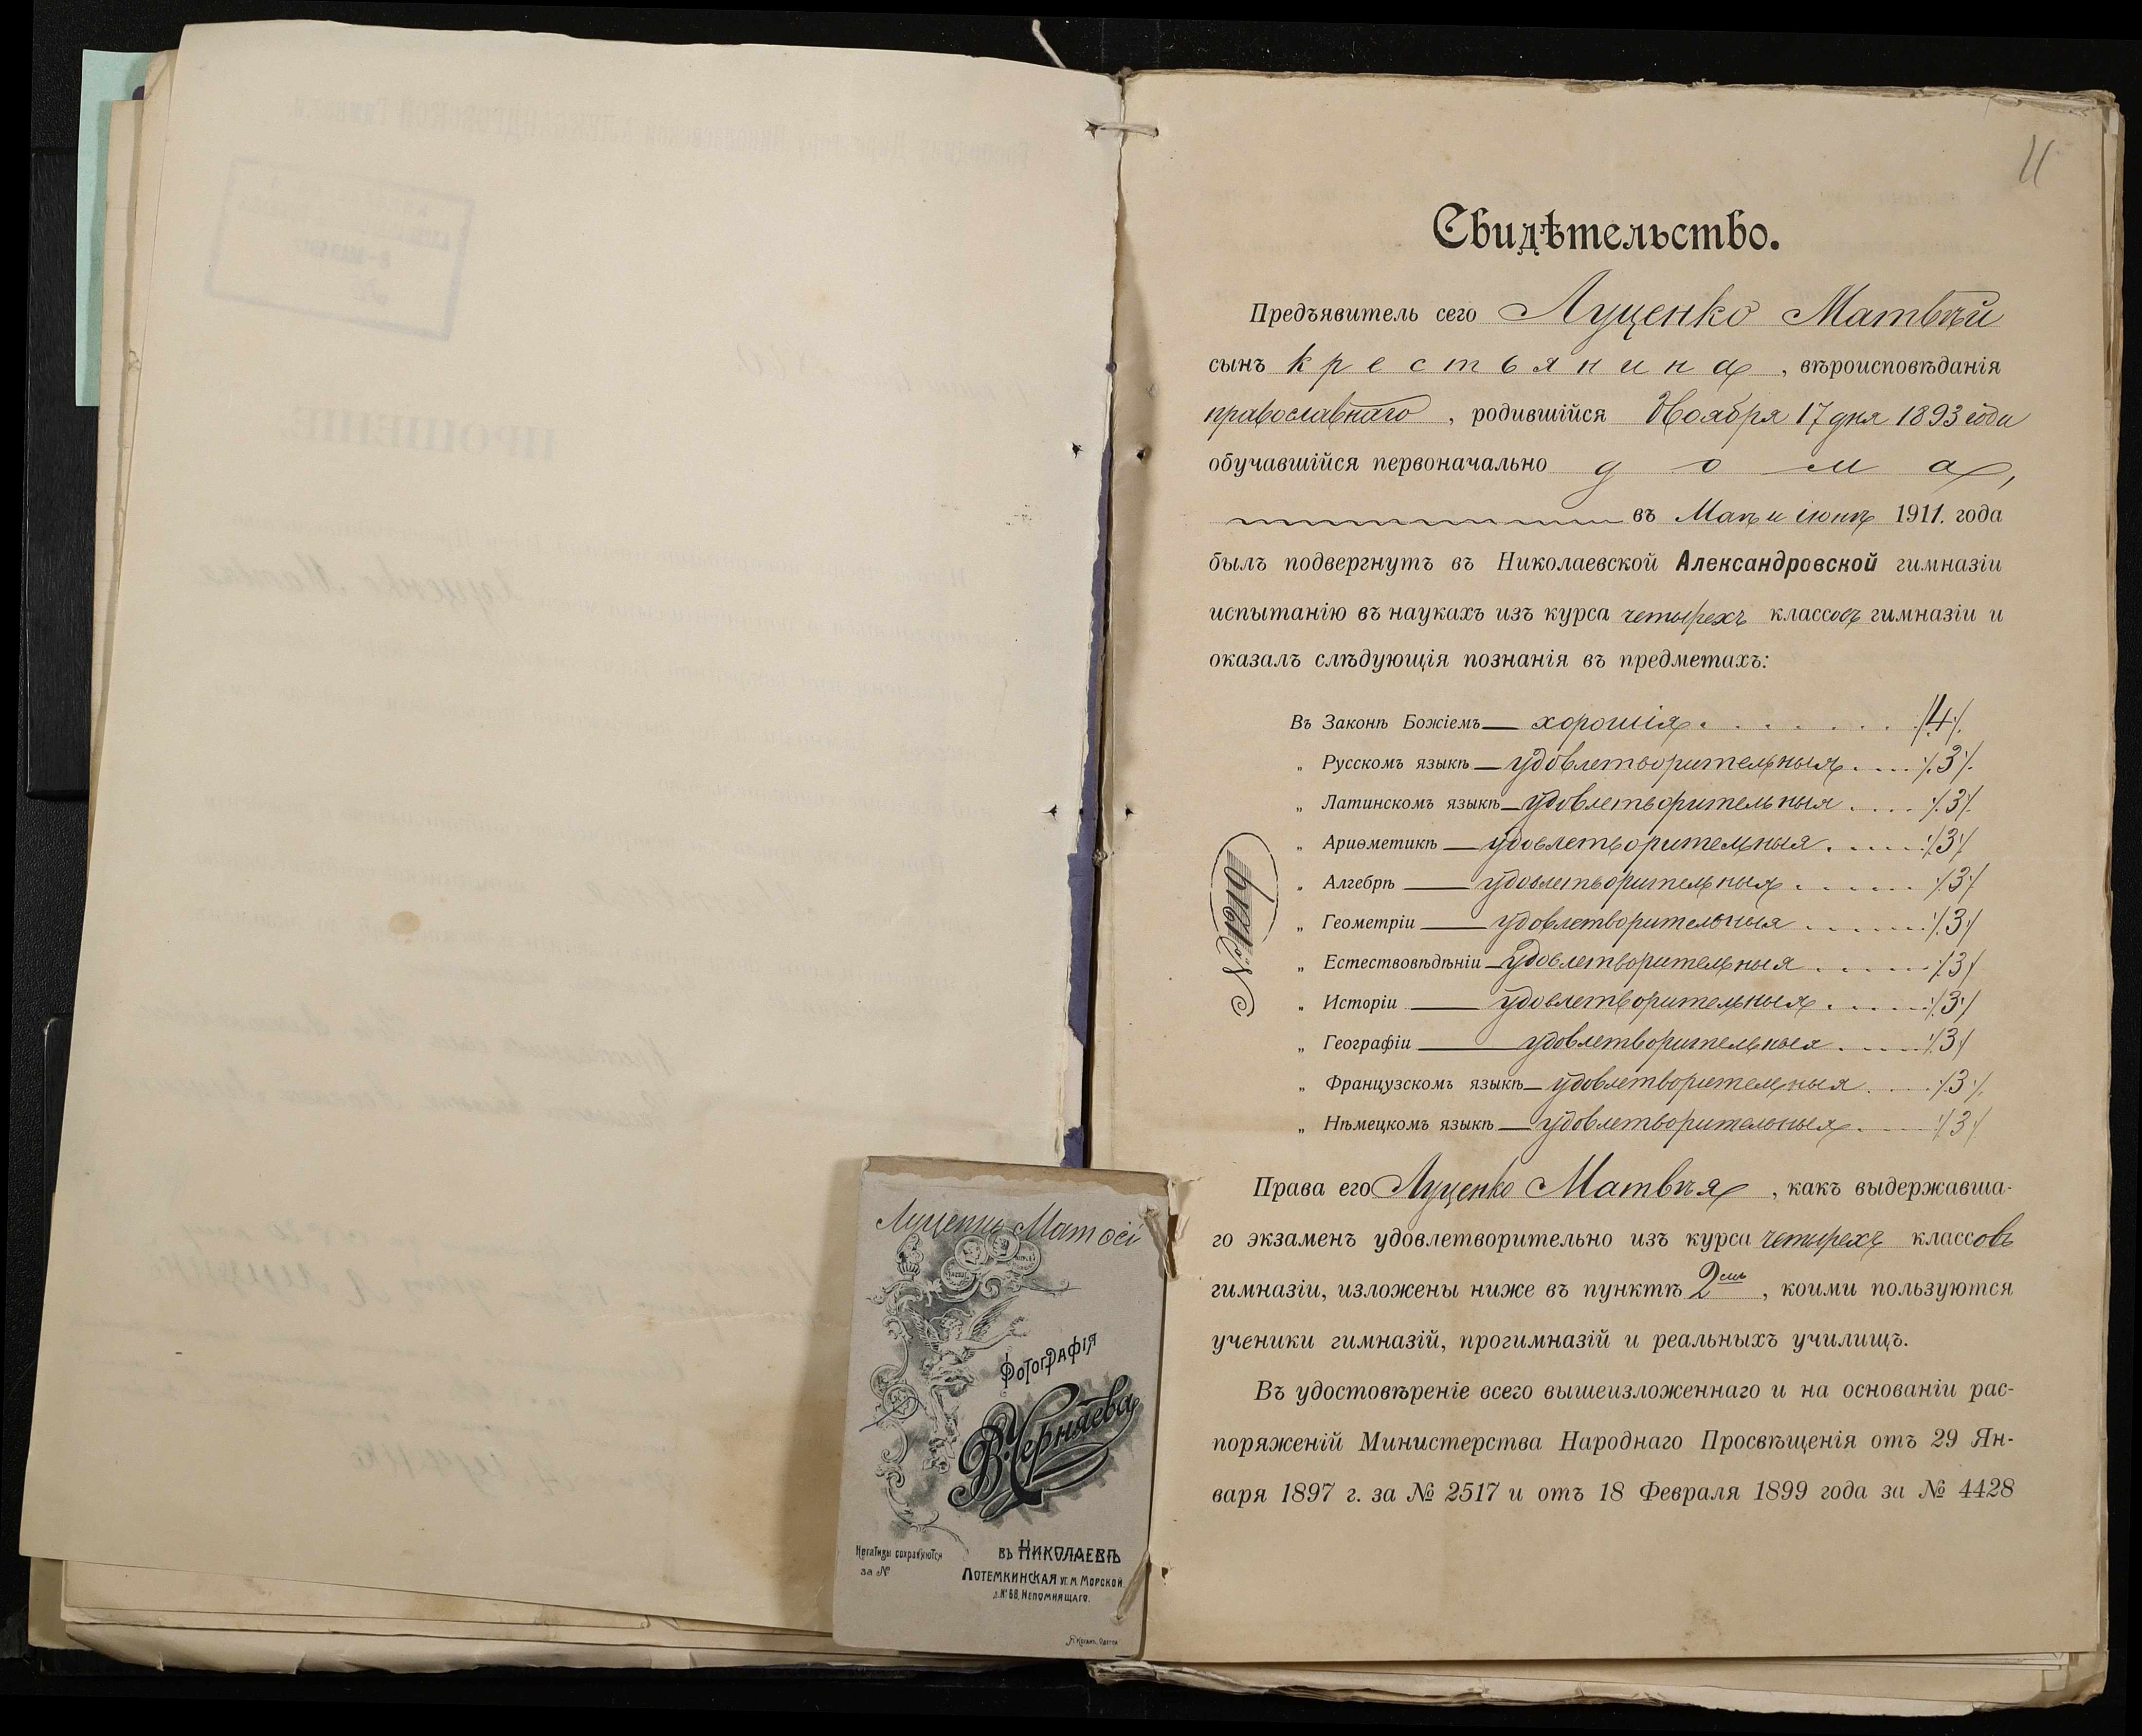 11
Свидѣтельство.
Предъявитель сего Луценко Матвѣй
сынъ крестьянина, вѣроисповѣданія
православнаго, родившійся Ноября 17 дня 1893 года
обучавшійся первоначально дома,
въ Маѣ и іюнѣ 1911. года
былъ подвергнутъ въ Николаевской Александровской гимназіи
испытанію въ наукахъ изъ курса четырехъ классовъ гимназіи и
оказалъ слѣдующія познанія въ предметахъ:
Въ Законѣ Божіемъ — хорошія . . . . . . . ./4/.
„ Русскомъ языкѣ — удовлетворительныя . . . . ./.3./.
„ Латинскомъ языкѣ — удовлетворительныя . . . . ./.3./.
„ Ариѳметикѣ — удовлетворительныя . . . . ./3/
„ Алгебрѣ — удовлетворительныя . . . . . ./3/
„ Геометріи — удовлетворительныя . . . . . . ./3/
„ Естествовѣдѣніи — удовлетворительныя . . . . . ./3/
„ Исторіи — удовлетворительныя . . . . . ./3/
„ Географіи — удовлетворительныя . . . . ./3/
„ Французскомъ языкѣ — удовлетворительныя . . . ./3/.
„ Нѣмецкомъ языкѣ — удовлетворительныя . . . ./3/
№ 1219
Права его Луценко Матвѣя, какъ выдержавша-
го экзаменъ удовлетворительно изъ курса четырехъ классовъ
гимназіи, изложены ниже въ пунктѣ 2емъ, коими пользуются
ученики гимназій, прогимназій и реальныхъ училищъ.
Въ удостовѣреніе всего вышеизложеннаго и на основаніи рас-
поряженій Министерства Народнаго Просвѣщенія отъ 29 Ян-
варя 1897 г. за № 2517 и отъ 18 Февраля 1899 года за № 4428
Луценко Матвѣй
Фотографія
В. Черняева
Негативы сохраняются
за №
въ Николаевѣ
Потемкинская уг. М. Морской
д. № 68, Непомнящаго.